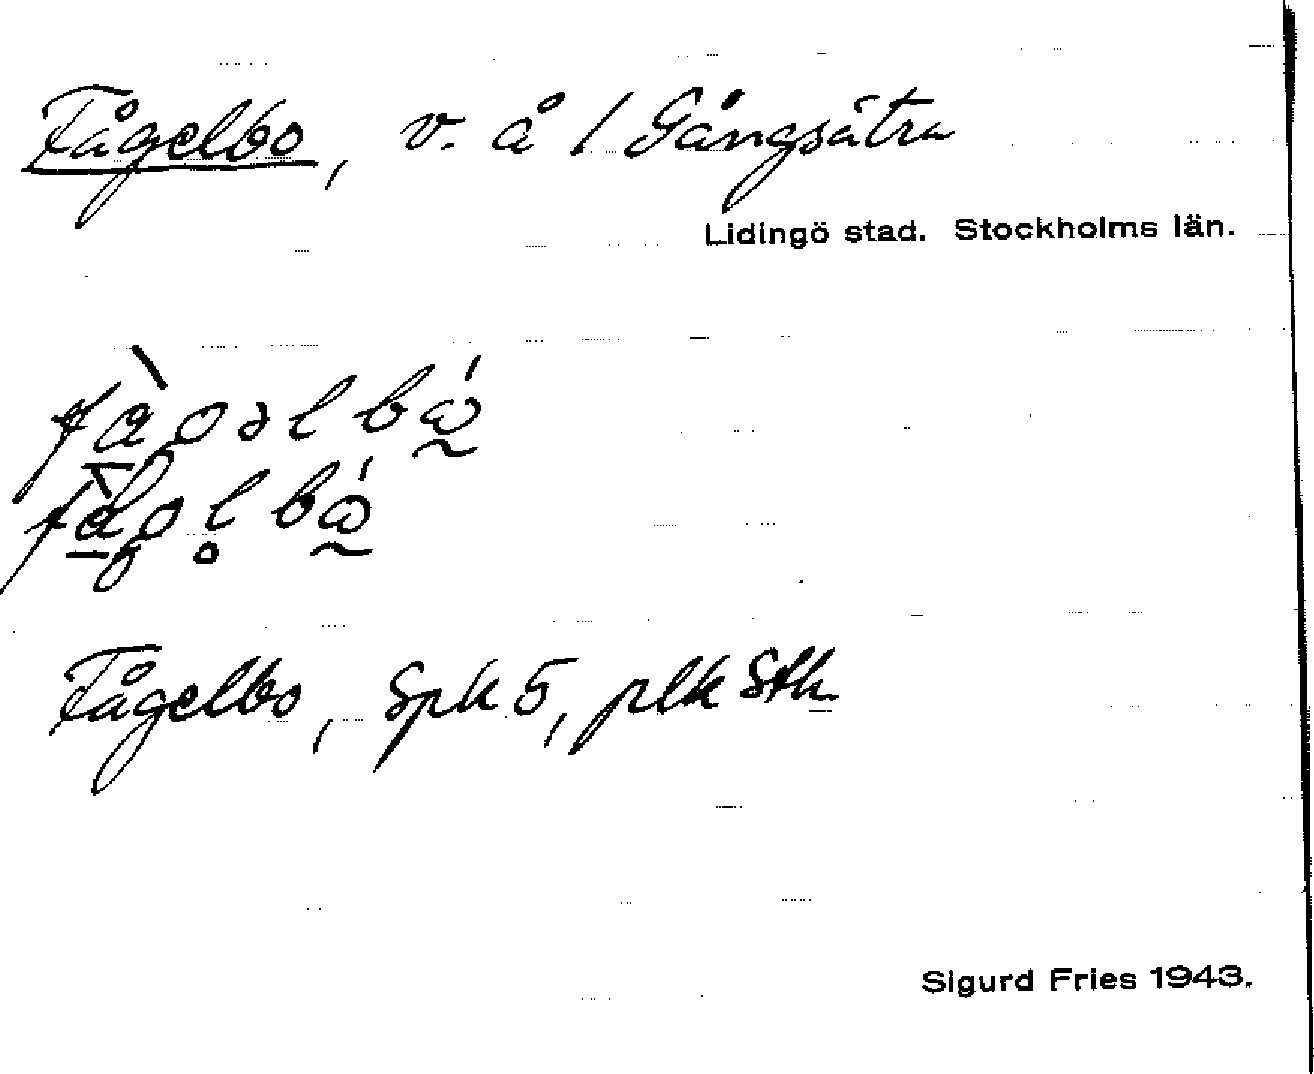 Fågelbo, v. å / Gångsätra
Lidingö stad. Stockholms län.
Fågelbo, Spk 5, plk Sth
Sigurd Fries 1943.